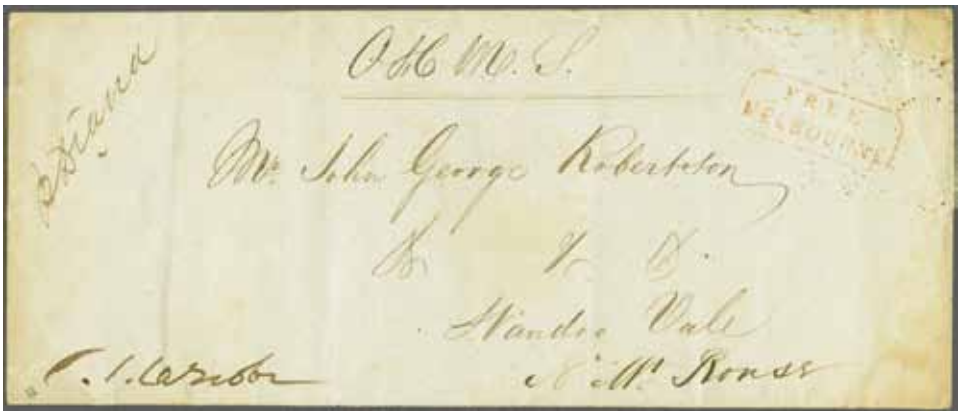 O H M. S.
FREE
MELBOURNE
Mr. John George Robertson
Wando Vale
Mt Rouse
C. J. La Trobe